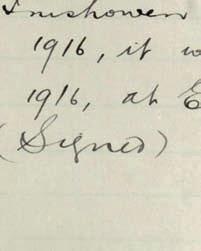 Inishowen
1916, it w
1916, at E
(Signed)